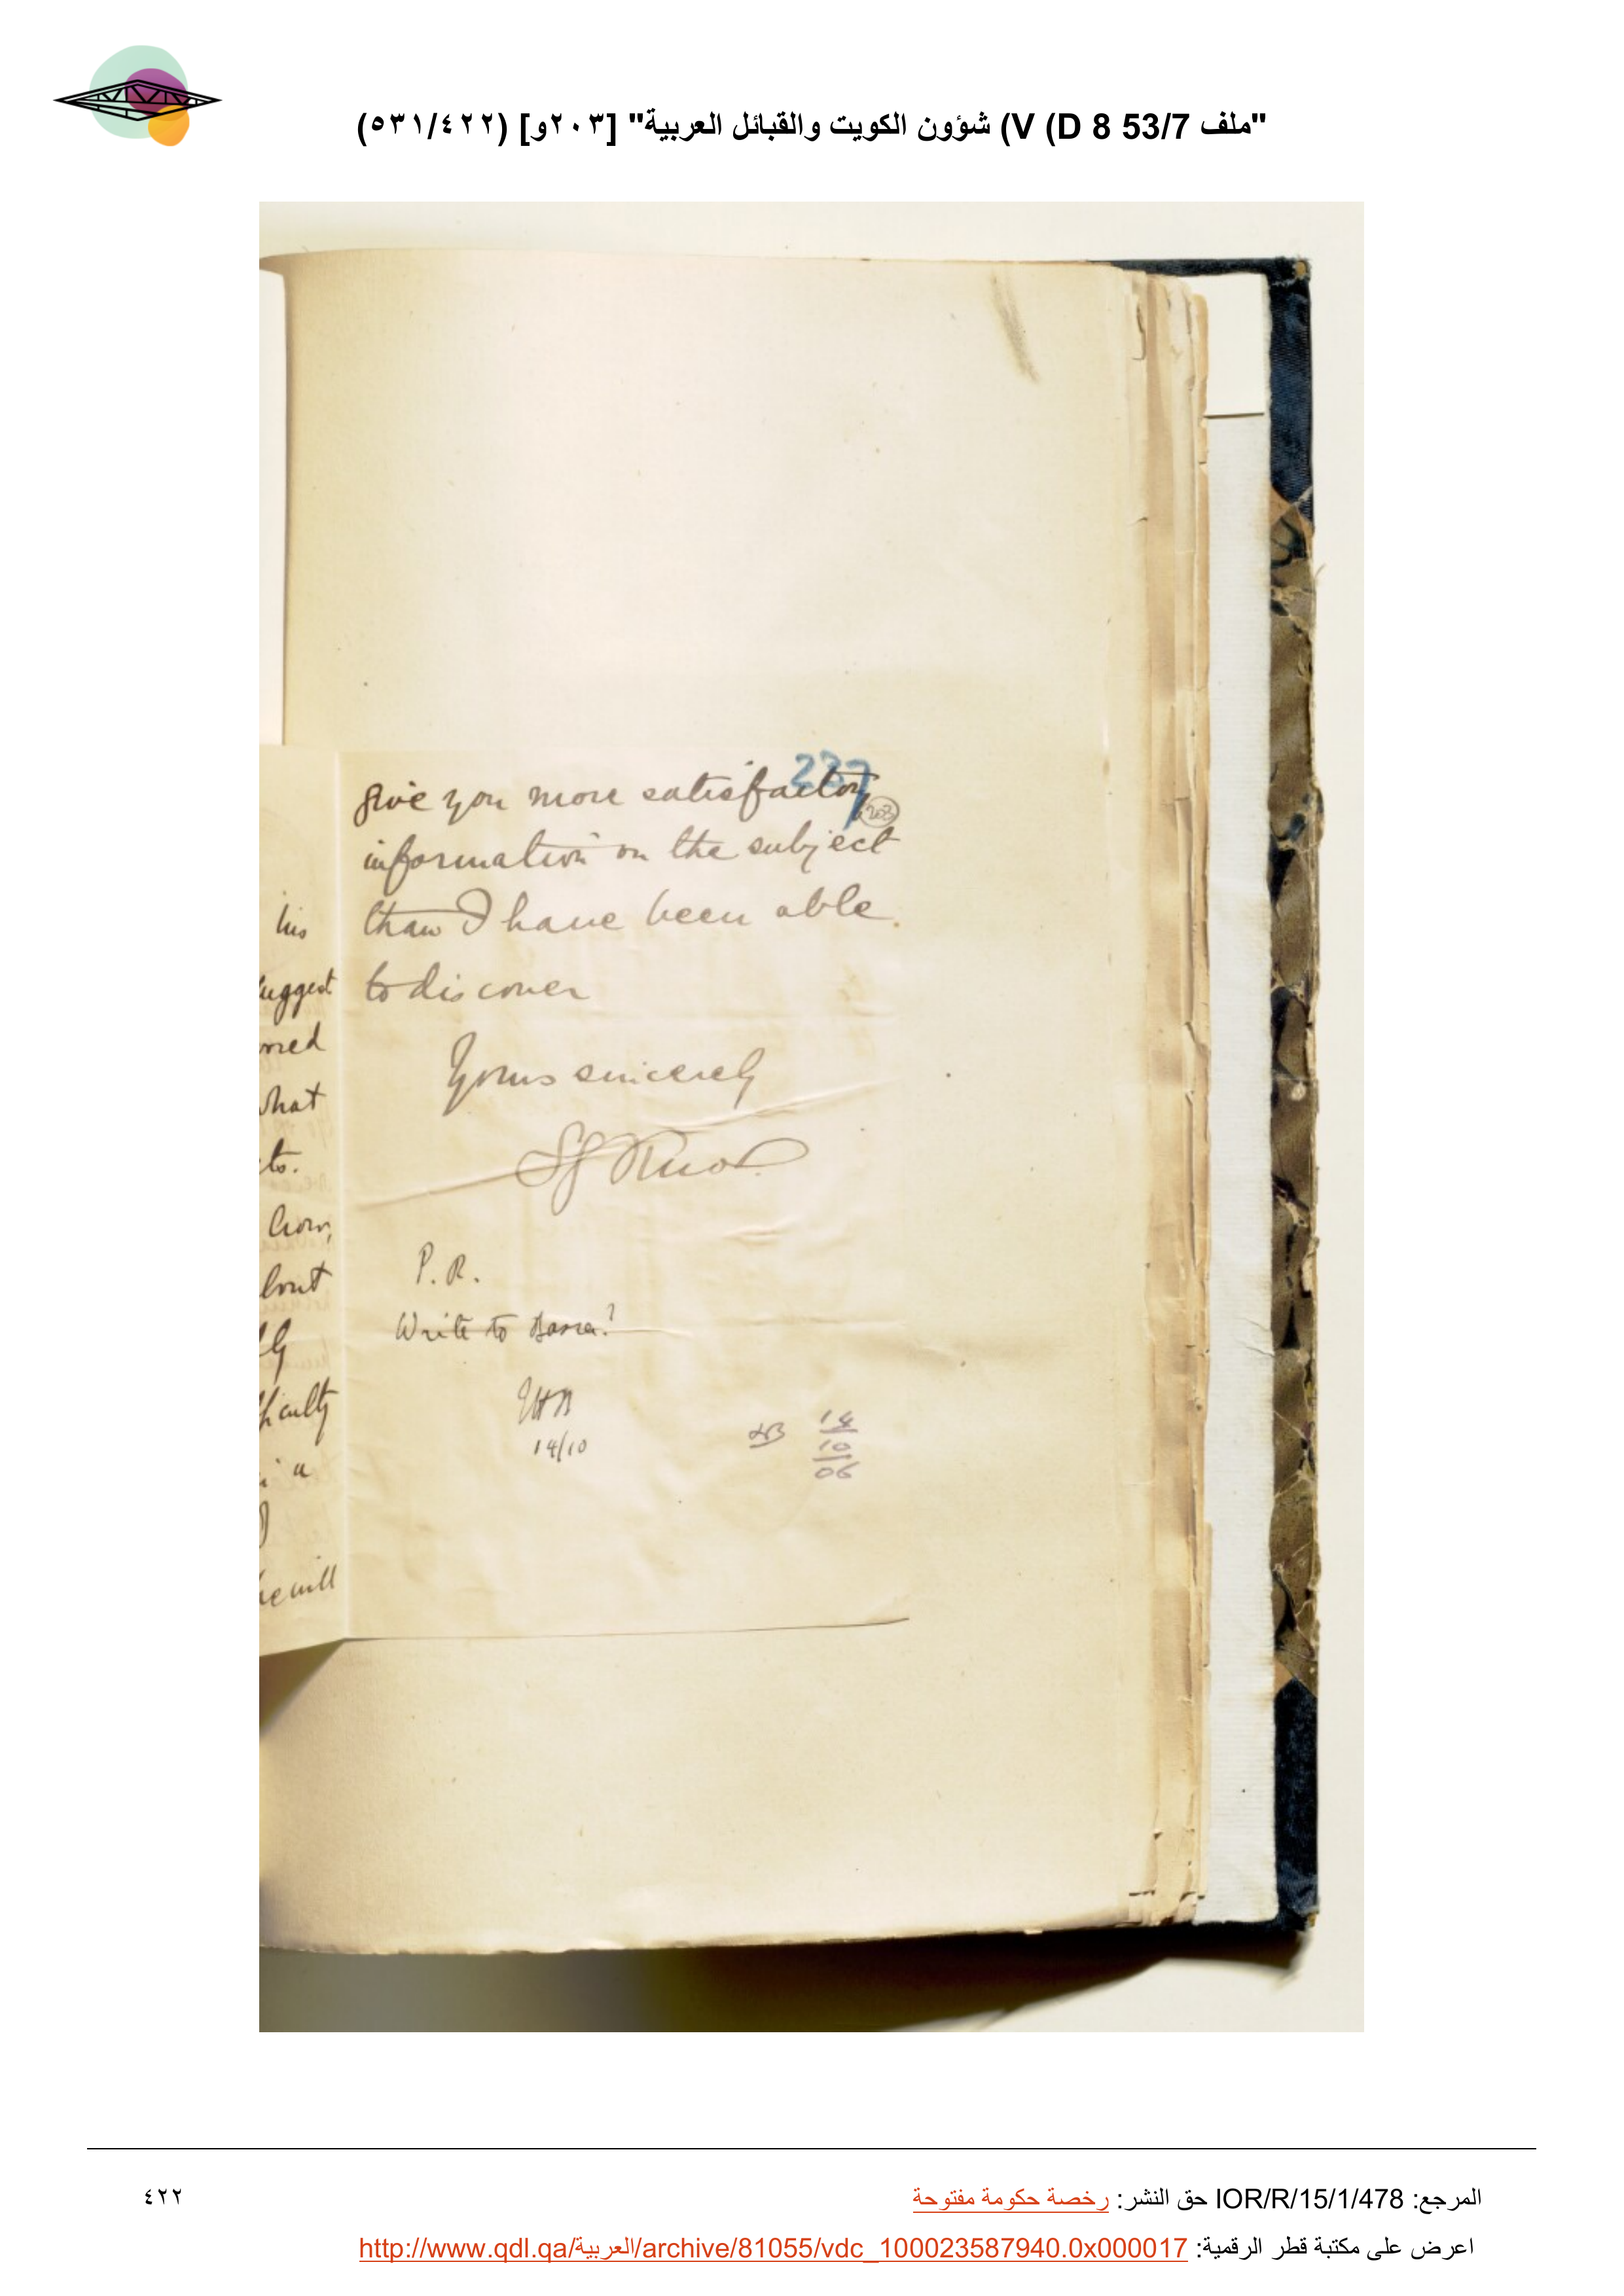 "ملف 53/7 D 8) V) شؤون الكويت والقبائل العربية" [٢٠٣و] (٥٣١/٤٢٢)
237
203
give you more satisfactory
information on the subject
than I have been able
to discover
Yours sincerely
SG Knox
his
suggest
what
to.
how,
a
he will
P. R.
Write to Basra?
14/10
14
10
06
المرجع: IOR/R/15/1/478 حق النشر: رخصة حكومة مفتوحة
٤٢٢
اعرض على مكتبة قطر الرقمية: http://www.qdl.qa/العربية/archive/81055/vdc_100023587940.0x000017